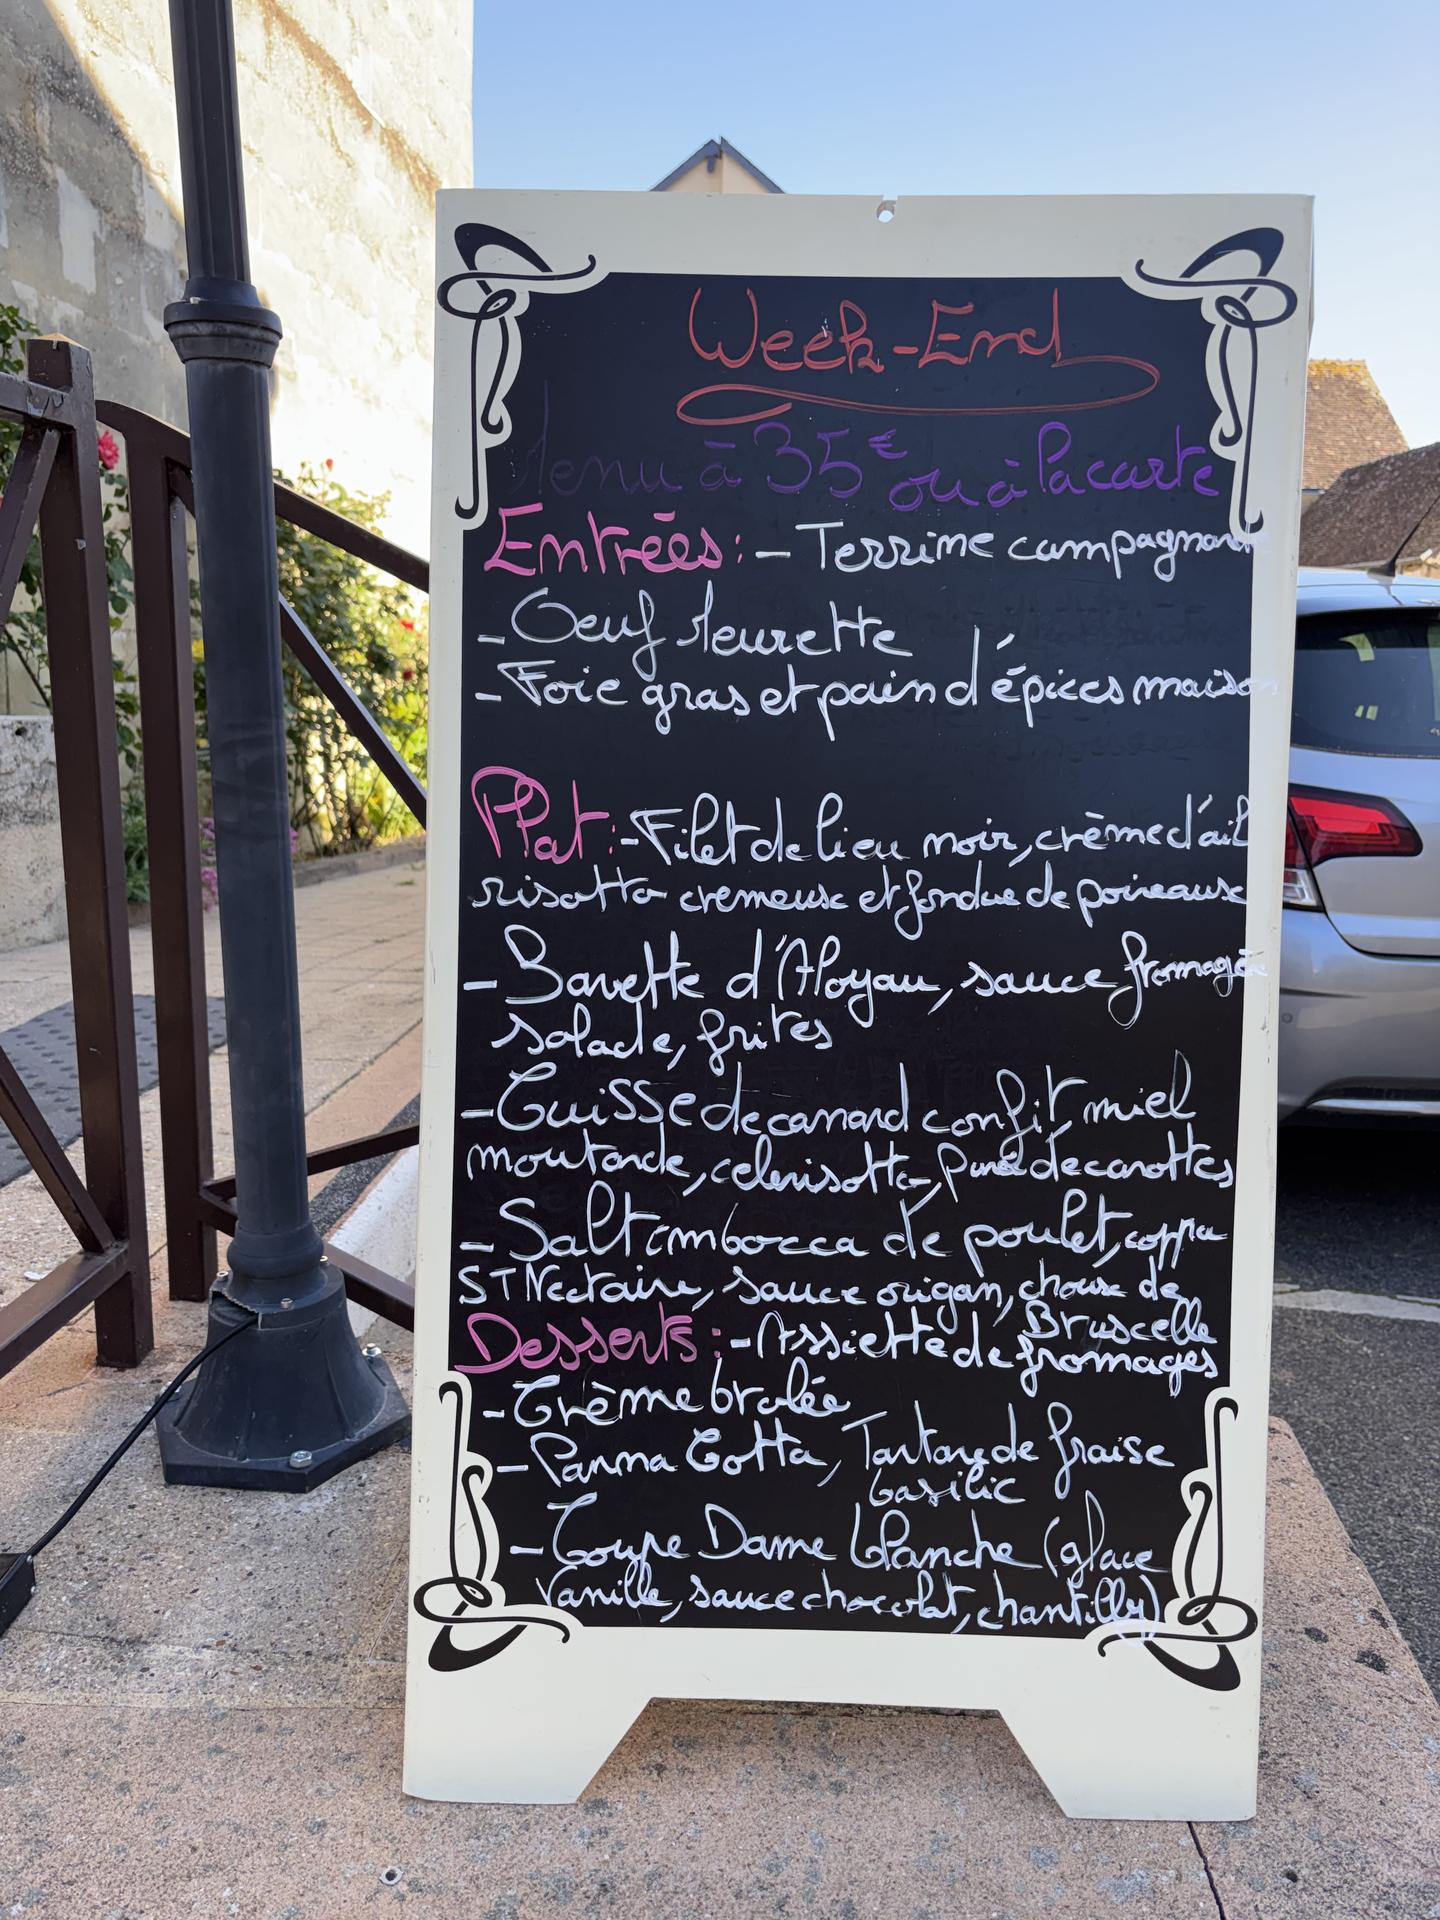 Week-End
Menu à 35€ ou à la carte
Entrées: - Terrine campagnarde
- Oeuf Meurette
- Foie gras et pain d'épices maison
Plat: - Filet de lieu noir, crème d'ail
risotto cremeux et fondue de poireaux
- Bavette d'Aloyau, sauce fromagère
salade, frites
- Cuisse de canard confit miel
moutarde, celerisotto, purée de carottes
- Saltimbocca de poulet, coppa
ST Nectaire, sauce origan, choux de
Bruxelle
Desserts: - Assiette de fromages
- Crème brulée
- Panna Cotta, Tartare de fraise
basilic
- Coupe Dame blanche (glace
Vanille, sauce chocolat, chantilly)